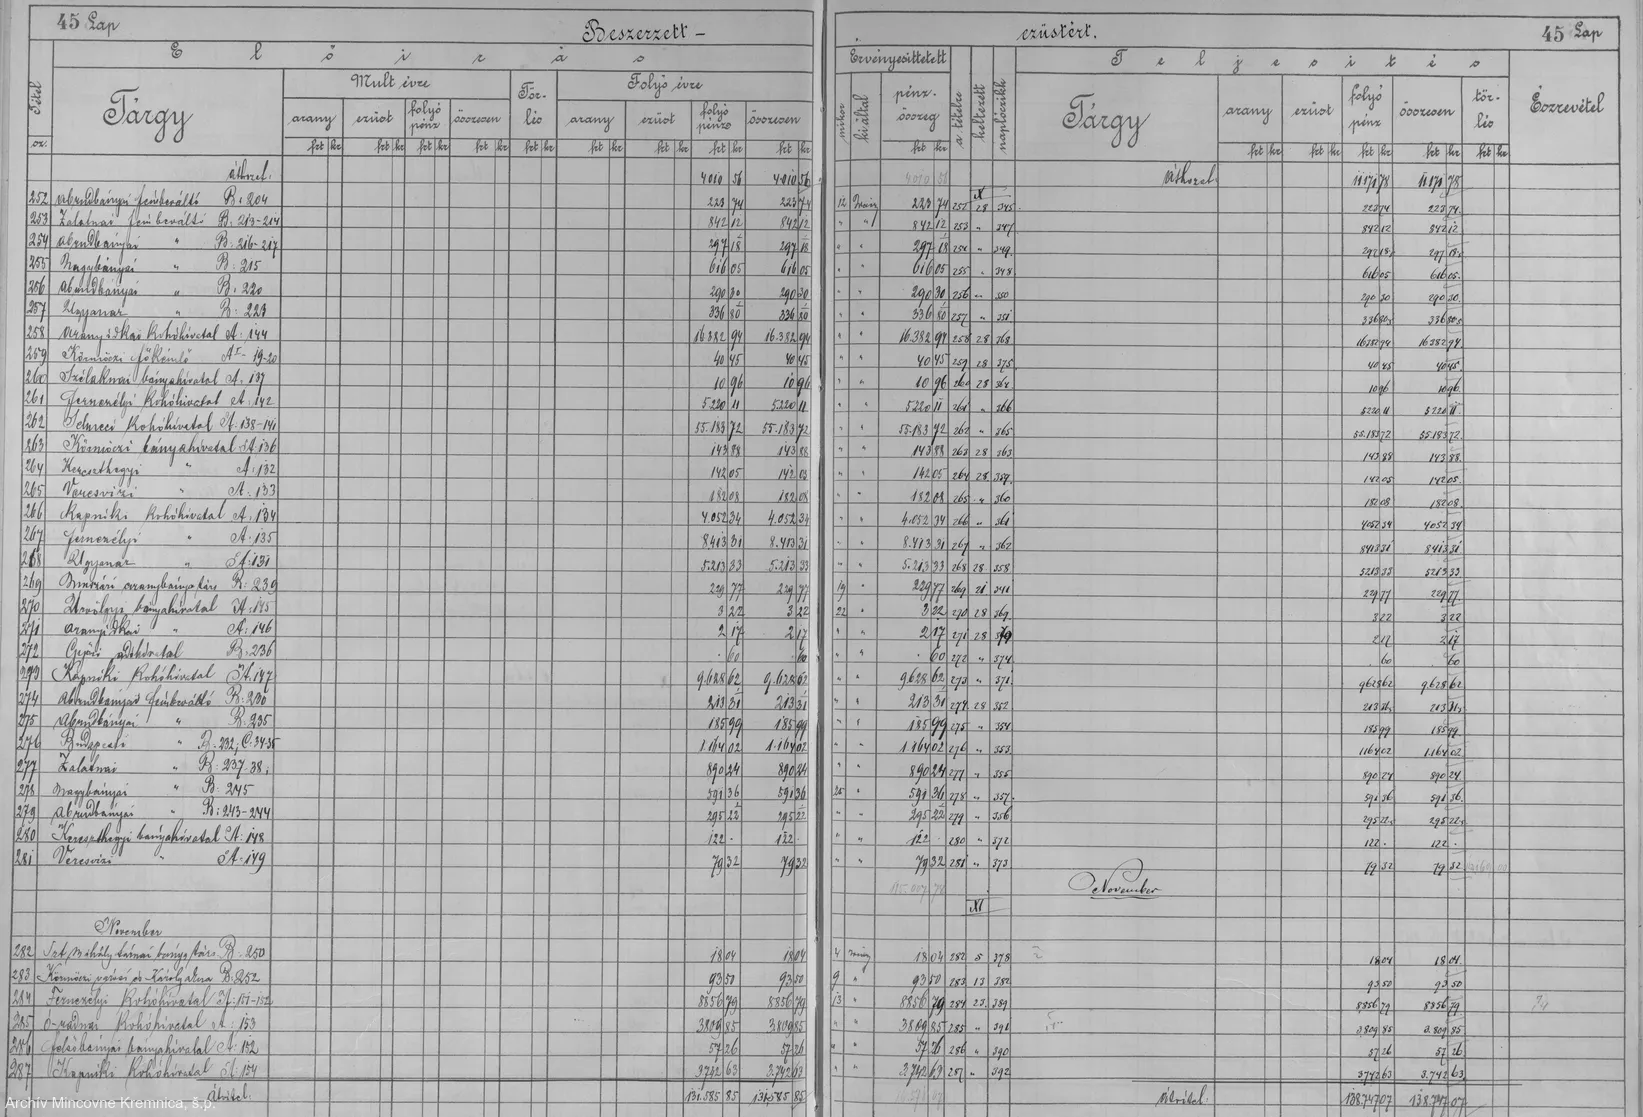 45 Lap
Beszerzett –
Előirás
Tétel
sz.
Tárgy
Mult évre
arany ezüst folyó pénz összesen
Tör-lés
Folyó évre
arany ezüst folyó pénz összesen
frt kr
Áthozat: 4010 56 4010 56
252 Abrudbányai fémbeváltó B: 204 223 74 223 74
253 Zalatnai fémbeváltó B: 213-214 842 12 842 12
254 Abrudbányai " B: 216-217 297 18 297 18
255 Nagybányai " B: 215 616 05 616 05
256 Abrudbányai " B: 220 290 30 290 30
257 Ugyanaz " B: 223 336 80 336 80
258 Aranyidkai Kohóhivatal A: 144 16.382 94 16.382 94
259 Körmöczi főkémlő 19-20 40 45 40 45
260 bányahivatal A: 137 10 96 10 96
261 Fernezélyi Kohóhivatal A: 142 5220 11 5220 11
262 Selmeci Kohóhivatal A: 138-141 55.183 72 55.183 72
263 Körmöczi bányahivatal A: 136 143 88 143 88
264 Kereszthegyi " A: 132 142 05 142 05
265 Veresvizi " A: 133 182 08 182 08
266 Kapniki Kohóhivatal A: 134 4.052 34 4.052 34
267 Fernezélyi " A: 135 8.413 31 8.413 31
268 Ugyanaz " A: 131 5.213 33 5.213 33
269 aranybánya társ B: 239 229 77 229 77
270 bányahivatal A: 145 3 22 3 22
271 Aranyidkai " A: 146 2 17 2 17
272 adóhivatal B: 236 . 60 . 60
273 Kapniki Kohóhivatal A: 147 9.628 62 9.628 62
274 Abrudbányai fémbeváltó B: 230 213 31 213 31
275 Abrudbányai " B: 235 185 99 185 99
276 Budapesti " B: 232; C: 34-35 1.164 02 1.164 02
277 Zalatnai " B: 237-38; 890 24 890 24
278 Nagybányai " B: 245 591 36 591 36
279 Abrudbányai " B: 243-244 295 22 295 22
280 Kereszthegyi bányahivatal A: 148 122 . 122 .
281 Veresvizi " A: 149 79 32 79 32
November
282 Szt Mihály bánya társ B: 250 18 04 18 04
283 Körmöczi városi és Károly akna B: 252 93 50 93 50
284 Fernezélyi Kohóhivatal A: 151-152 8856 79 8856 79
285 O-radnai Kohóhivatal A: 153 3.809 85 3.809 85
286 Felsőbányai bányahivatal A: 152 57 26 57 26
287 Kapniki Kohóhivatal A: 154 3.742 63 3.742 63
Átvitel: 131.585 85 131.585 85
ezüstért.
45 Lap
Érvényesittetett
mikor kiáltal pénz-összeg a tételre keltezett naplóczikk
Teljesités
Tárgy
arany ezüst folyó pénz összesen tör-lés
Észrevétel
frt kr
4010 56 Áthozat: 11171 78 11171 78
X
12 223 74 252 28 345 223 74 223 74
" " 842 12 253 " 347 842 12 842 12
" " 297 18 254 " 349 297 18 297 18
" " 616 05 255 " 348 616 05 616 05
" " 290 30 256 " 350 290 30 290 30
" " 336 80 257 " 351 336 80 336 80
" " 16.382 94 258 28 368 16382 94 16382 94
" " 40 45 259 28 375 40 45 40 45
" " 10 96 260 28 364 10 96 10 96
" " 5220 11 261 " 366 5220 11 5220 11
" " 55.183 72 262 " 365 55.183 72 55.183 72
" " 143 88 263 28 363 143 88 143 88
" " 142 05 264 28 359 142 05 142 05
" " 182 08 265 " 360 182 08 182 08
" " 4.052 34 266 " 361 4052 34 4052 34
" " 8.413 31 267 " 362 8413 31 8413 31
" " 5.213 33 268 28 358 5213 33 5213 33
19 " 229 77 269 21 341 229 77 229 77
22 " 3 22 270 28 369 3 22 3 22
" " 2 17 271 28 2 17 2 17
" " . 60 272 " 374 . 60 . 60
" " 9628 62 273 " 371 9628 62 9.628 62
" " 213 31 274 28 352 213 31 213 31
" " 185 99 275 " 354 185 99 185 99
" " 1.164 02 276 " 353 1164 02 1.164 02
" " 890 24 277 " 355 890 24 890 24
25 " 591 36 278 " 357 591 36 591 36
" " 295 22 279 " 356 295 22 295 22
" " 122 . 280 " 372 122 . 122 .
" " 79 32 281 " 373 79 32 79 32
November
XI
4 18 04 282 5 378 18 04 18 04
9 " 93 50 283 13 382 93 50 93 50
13 " 8856 79 284 23 389 8856 79 8856 79
" " 3809 85 285 " 391 3.809 85 3.809 85
" " 57 26 286 " 390 57 26 57 26
" " 3.742 63 287 " 392 3742 63 3.742 63
Átvitel: 138.747 07 138.747 07
Archív Mincovne Kremnica, š.p.